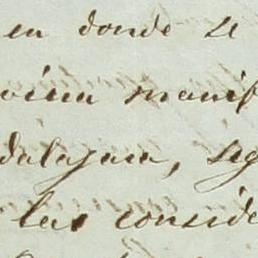 en donde se
manif
dalajara, seg
las conside